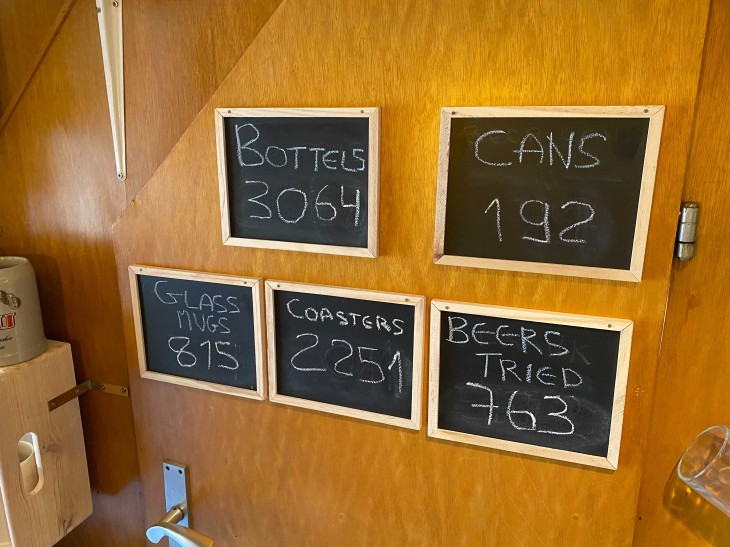 BOTTELS
3064
CANS
192
GLASS
MUGS
815
COASTERS
2251
BEERS
TRIED
763